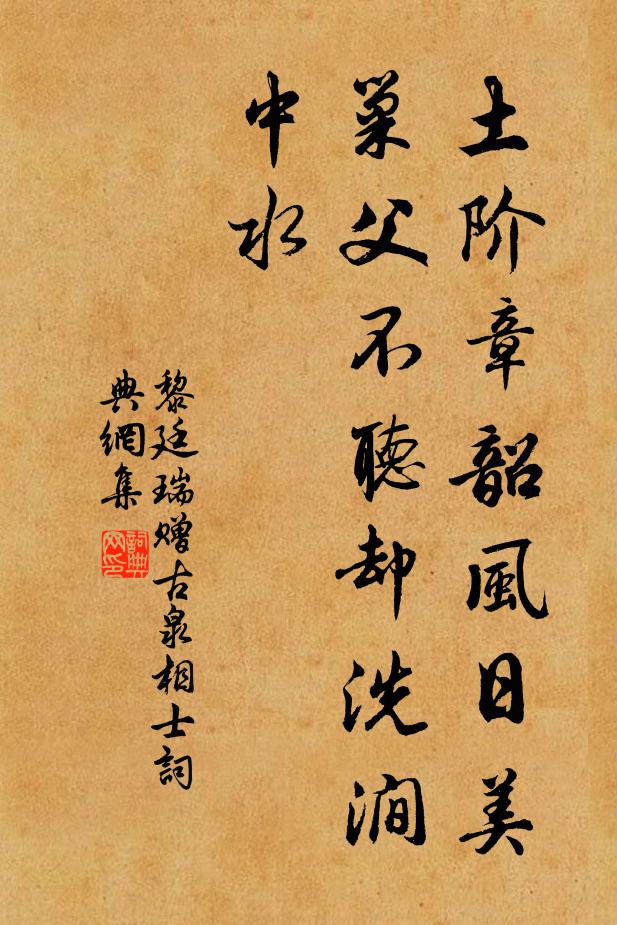 土阶章韶風日美
巢父不聽却洗澗
中水
黎廷瑞贈古泉相士詞
典網集
詞典
网印